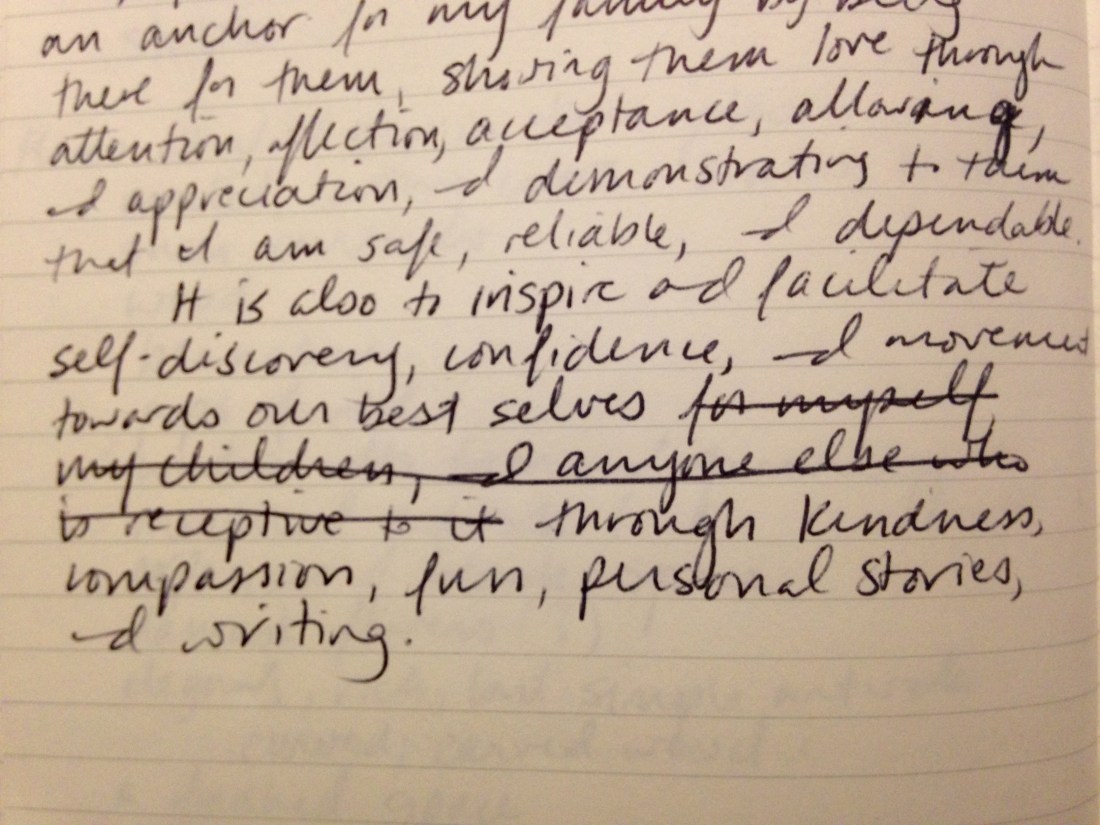 an anchor for my family by being
there for them, showing them love through
attention, affection, acceptance, allowing,
and appreciation, and demonstrating to them
that I am safe, reliable, and dependable.
It is also to inspire and facilitate
self-discovery, confidence, and movement
towards our best selves for myself,
my children, and anyone else who
is receptive to it through kindness,
compassion, fun, personal stories,
and writing.